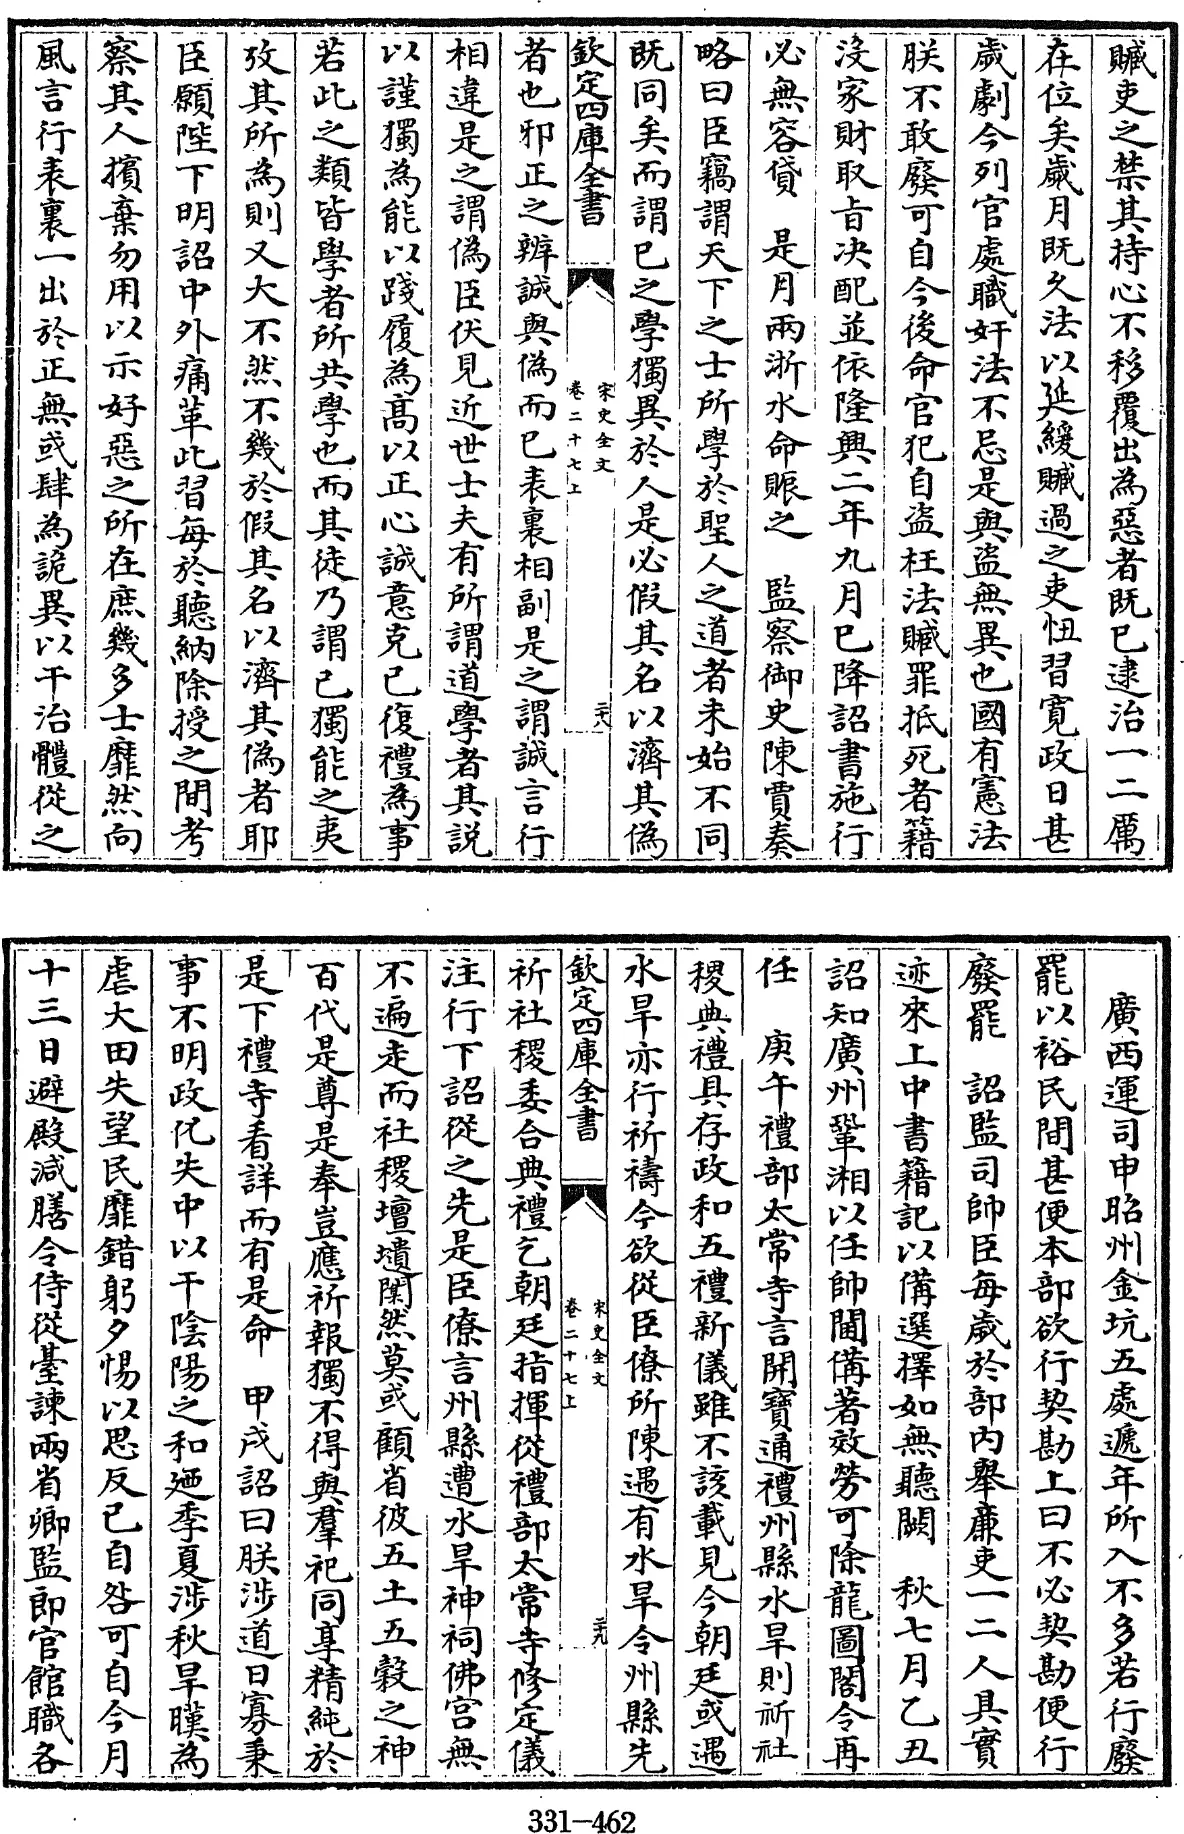 贓吏之禁其持心不移覆出為惡者既已逮治一二厲
在位矣歲月既久法以延緩贓過之吏忸習寛政日甚
歲劇今列官處職奸法不忌是與盜無異也國有憲法
朕不敢廢可自今後命官犯自盜枉法贓罪抵死者籍
沒家財取旨决配並依隆興二年九月已降詔書施行
必無容貸　是月兩浙水命賑之　監察御史陳賈奏
略曰臣竊謂天下之士所學於聖人之道者未始不同
既同矣而謂已之學獨異於人是必假其名以濟其偽
欽定四庫全書
宋史全文
卷二十七上
二八
者也邪正之辨誠與偽而已表裏相副是之謂誠言行
相違是之謂偽臣伏見近世士夫有所謂道學者其説
以謹獨為能以踐履為高以正心誠意克已復禮為事
若此之類皆學者所共學也而其徒乃謂已獨能之夷
攷其所為則又大不然不幾於假其名以濟其偽者耶
臣願陛下明詔中外痛革此習每於聽納除授之間考
察其人擯棄勿用以示好惡之所在庶幾多士靡然向
風言行表裏一出於正無或肆為詭異以干治體從之
廣西運司申昭州金坑五處遞年所入不多若行廢
罷以裕民間甚便本部欲行契勘上曰不必契勘便行
廢罷　詔監司帥臣每歲於部内舉廉吏一二人具實
迹來上中書籍記以備選擇如無聽闕　秋七月乙丑
詔知廣州鞏湘以任帥閫備著效勞可除龍圖閣令再
任　庚午禮部太常寺言開寶通禮州縣水旱則祈社
稷典禮具存政和五禮新儀雖不該載見今朝廷或遇
水旱亦行祈禱今欲從臣僚所陳遇有水旱令州縣先
欽定四庫全書
宋史全文
卷二十七上
二九
祈社稷委合典禮乞朝廷指揮從禮部太常寺修定儀
注行下詔從之先是臣僚言州縣遭水旱神祠佛宫無
不遍走而社稷壇壝闃然莫或顧省彼五土五穀之神
百代是尊是奉豈應祈報獨不得與羣祀同享精純於
是下禮寺看詳而有是命　甲戌詔曰朕涉道日寡秉
事不明政化失中以干陰陽之和廼季夏涉秋旱暵為
虐大田失望民靡錯躬夕惕以思反已自咎可自今月
十三日避殿減膳令侍從臺諫兩省卿監郎官館職各
331-462